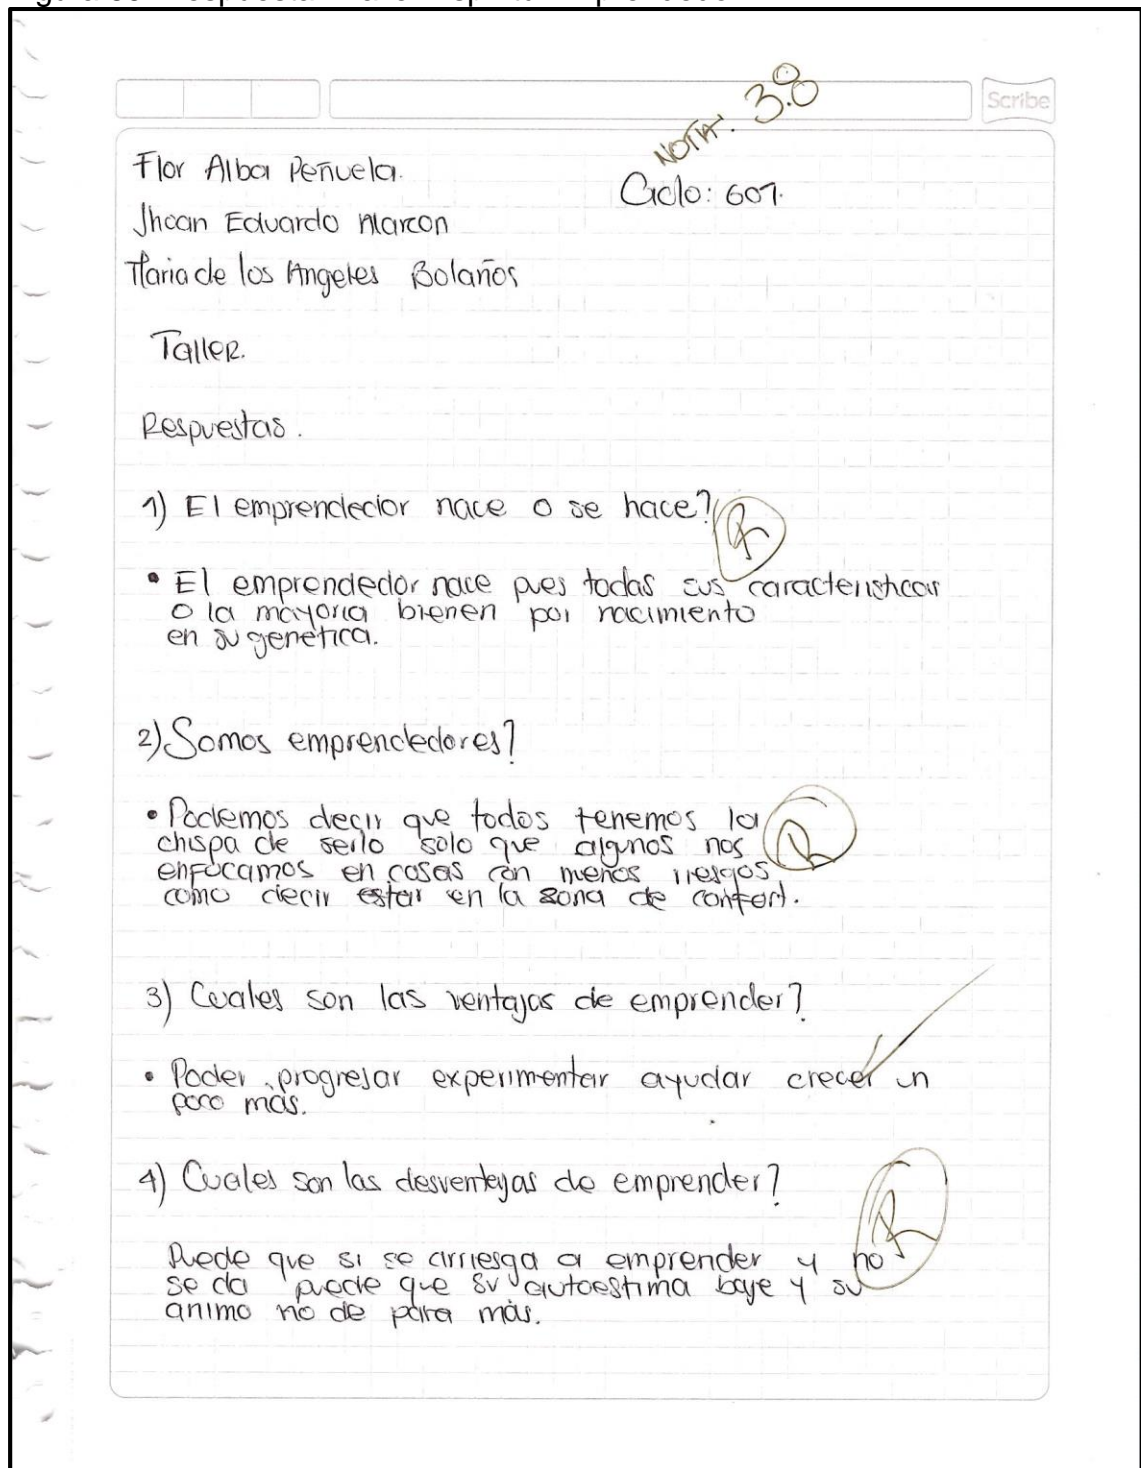 NOTA: 3.8
Scribe
Flor Alba Peñuela.
Ciclo: 607.
Jhoan Eduardo Marcon
Maria de los Angeles Bolaños
Taller.
Respuestas.
1) El emprendedor nace o se hace?
R
• El emprendedor nace pues todas sus caracteristicas
o la mayoria bienen por nacimiento
en su genética.
2) Somos emprendedores?
• Podemos decir que todos tenemos la
chispa de serlo solo que algunos nos
R
enfocamos en cosas con menos riesgos
como decir estar en la zona de confort.
3) Cuales son las ventajas de emprender?
• Poder progresar experimentar ayudar crecer un
poco más.
4) Cuales son las desventejas de emprender?
R
Puede que si se arriesga a emprender y no
se da puede que su autoestima baje y su
animo no de para más.